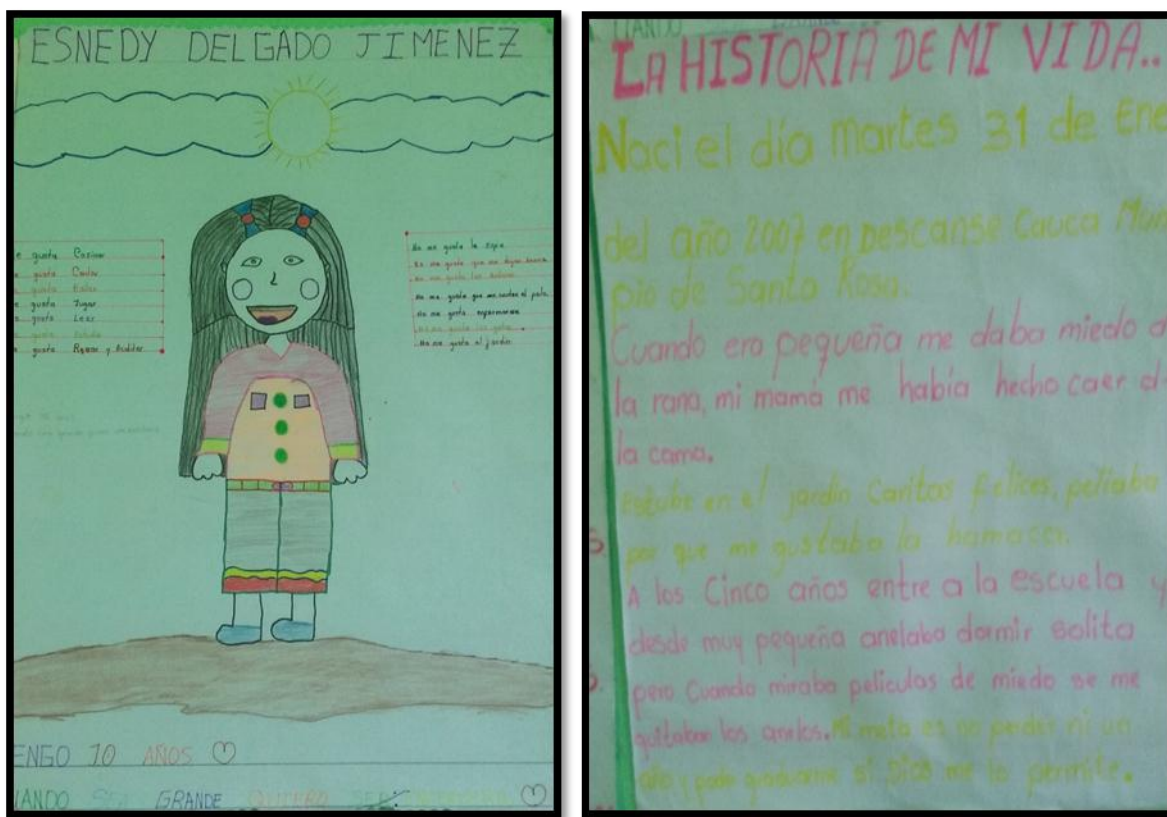 ESNEDY DELGADO JIMENEZ
e gusta Cocinar
gusta Cantar
gusta Bailar
e gusta Jugar
gusta Leer
gusta
gusta y
No me gusta la sopa
No me gusta que me dejen
No me gusta
No me gusta que me corten el pelo
No me gusta
No me gusta los gatos
No me gusta el jardin
ENGO 10 AÑOS
IANDO SEA GRANDE QUIERO SER
LA HISTORIA DE MI VIDA..
Naci el día martes 31 de Ene
del año 2007 en Descanse Cauca Muni
pio de Santa Rosa.
Cuando era pequeña me daba miedo d
la rana, mi mamá me había hecho caer d
la cama.
Estube en el jardin Caritas felices, peliaba
por que me gustaba la hamaca.
A los Cinco años entre a la escuela y
desde muy pequeña anelaba dormir solita
pero Cuando miraba peliculas de miedo se me
quitaban los anelos. Mi meta es no perder ni un
año y poder graduarme si Dios me lo permite.